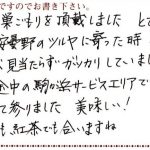 ですのでお書き下さい。
巣ごもりを頂戴しました と
安曇野のツルヤに寄った時
見当たらずガッカリしていまし
途中の駒ヶ岳サービスエリアで
て参りました 美味しい!
も紅茶でも合いますね